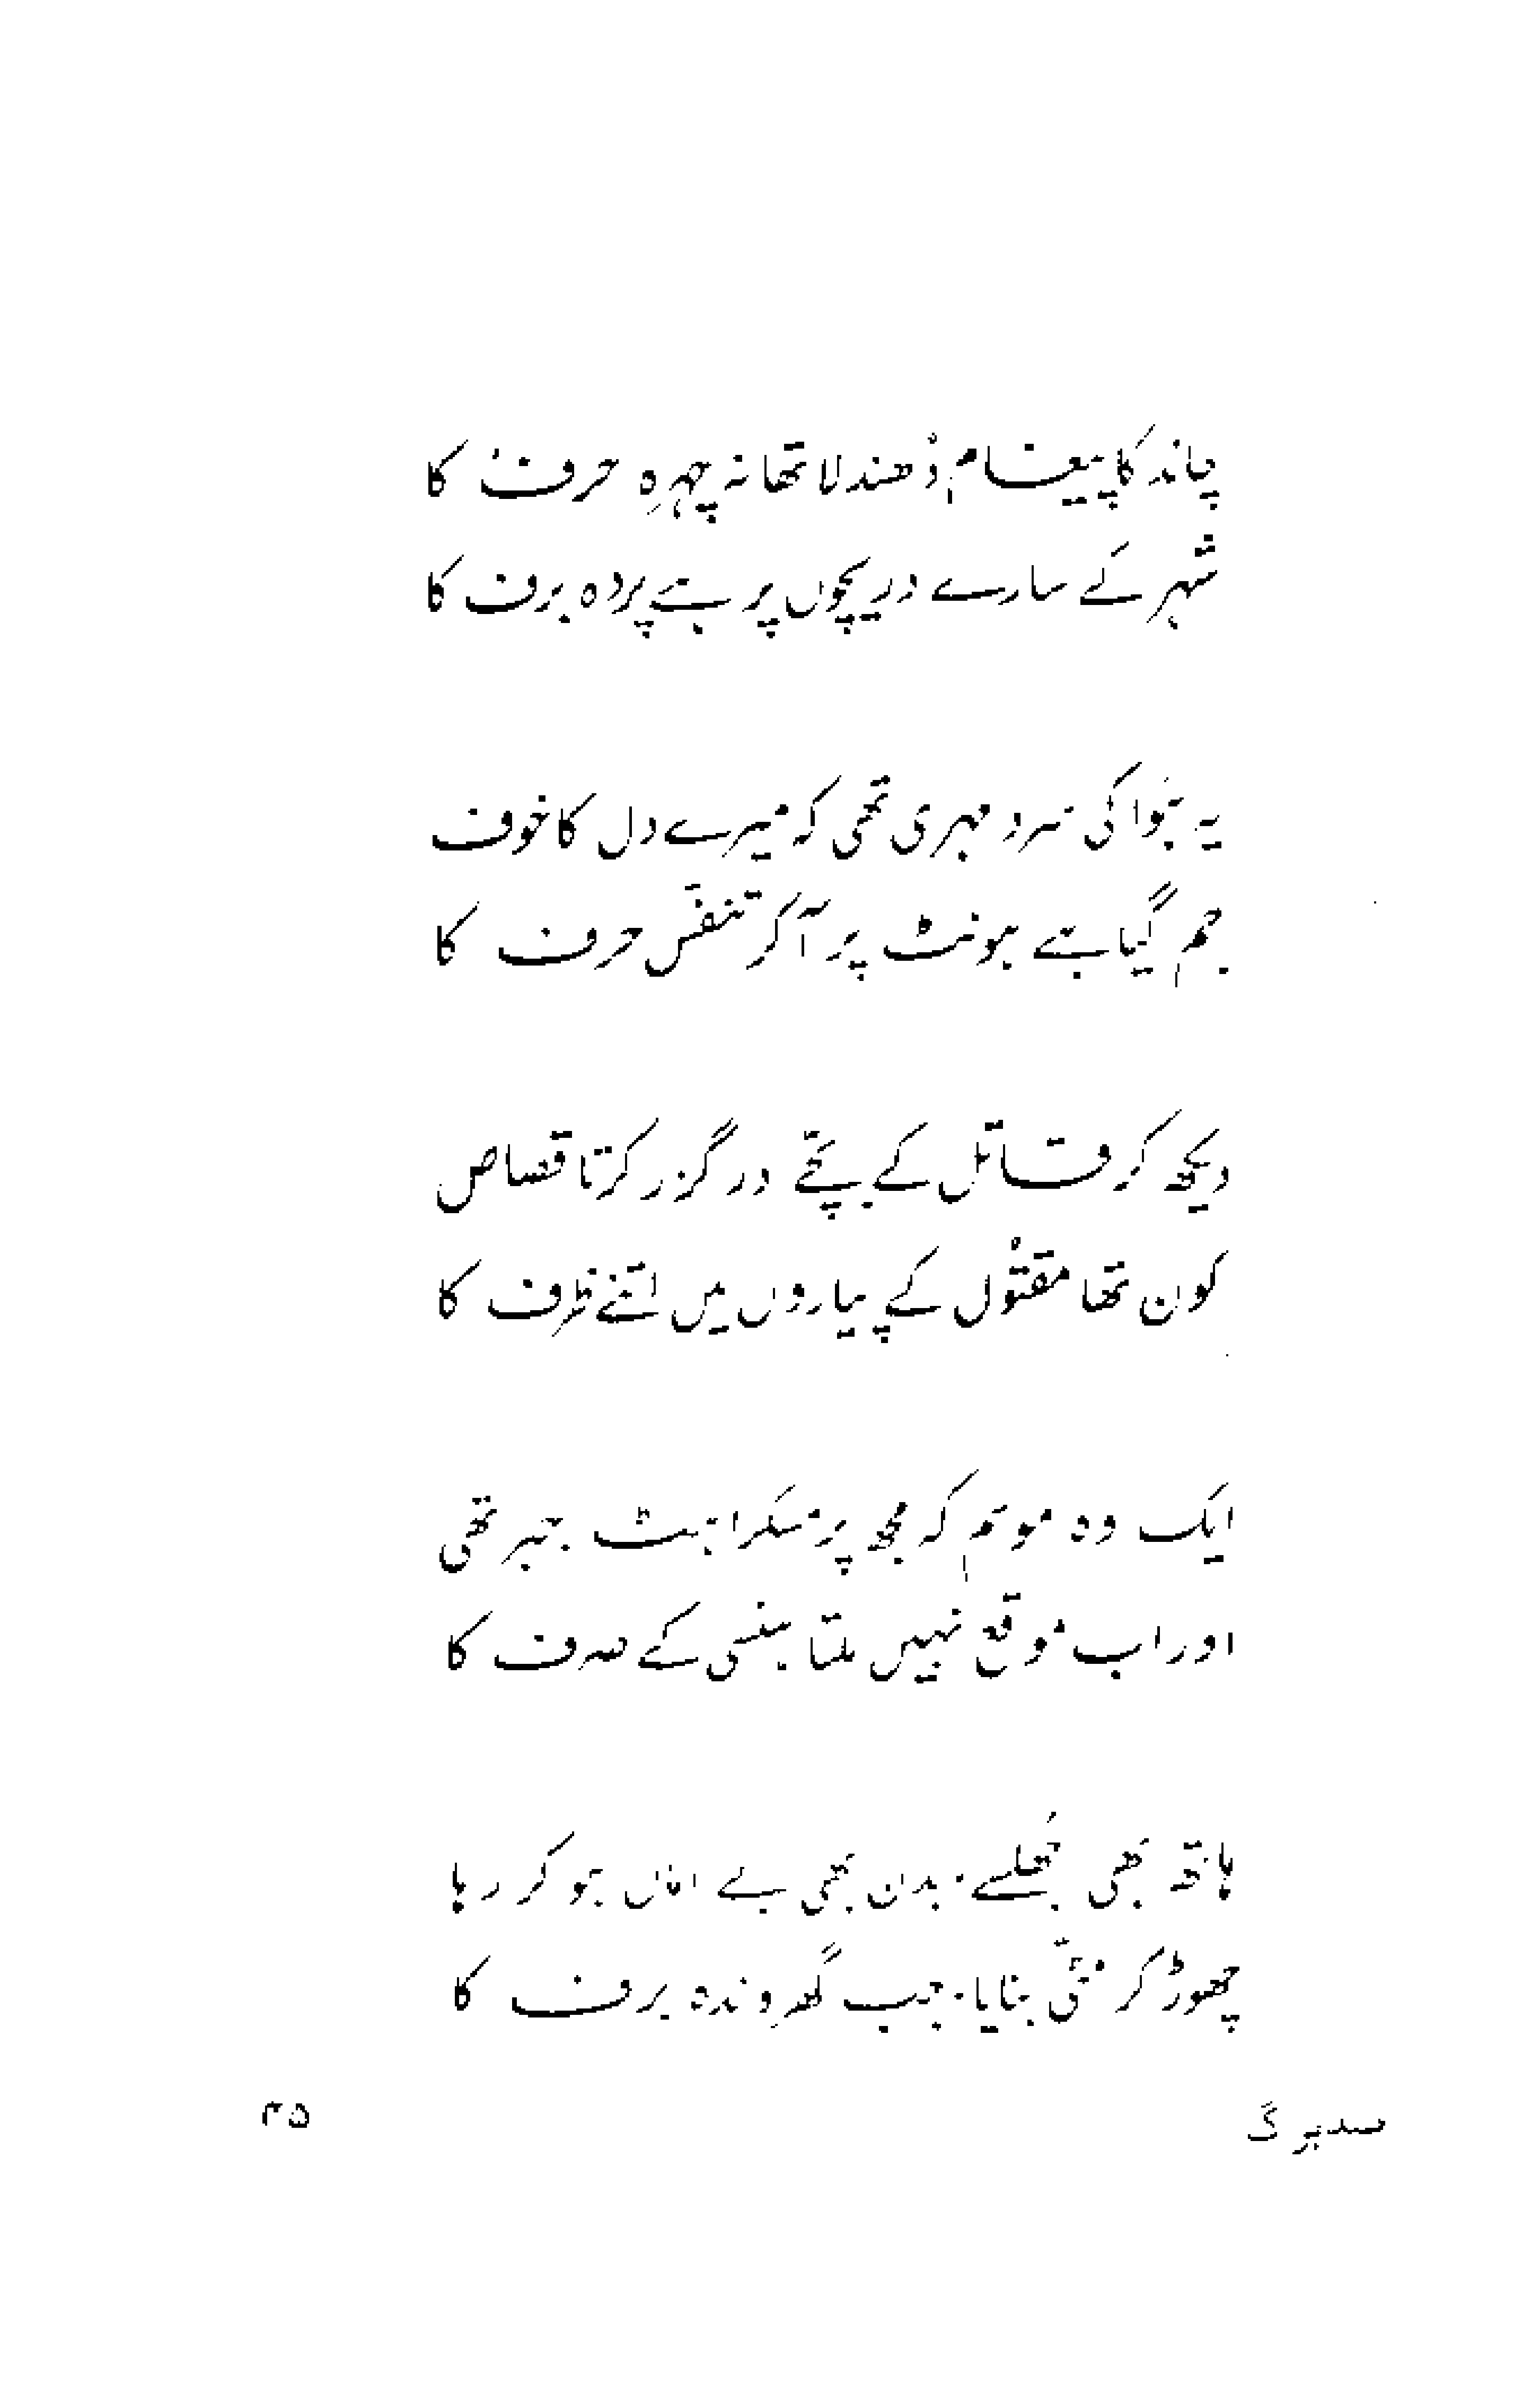 چاند کا پیغام دُھندلا تھا نہ چہرہِ حرف کا
شہر کے سارے دریچوں پر ہے پردہ برف کا
یہ ہَوا کی سرد مہری تھی کہ میرے دل کا خوف
جم گیا ہے ہونٹ پر آ کر تنفّس حرف کا
دیکھ کر قاتل کے بچّے درگزر کرتا قصاص
کون تھا مقتُول کے پیاروں میں اتنے ظرف کا
ایک وہ موسم کہ مجھ پر مسکراہٹ جبر تھی
اور اب موقع نہیں ملتا ہنسی کے صرف کا
ہاتھ بھی جُھلسے، بدن بھی بے اماں ہو کر رہا
چھوڑ کر مٹّی بنایا، جب گھروندہ برف کا
صدبرگ
۴۵